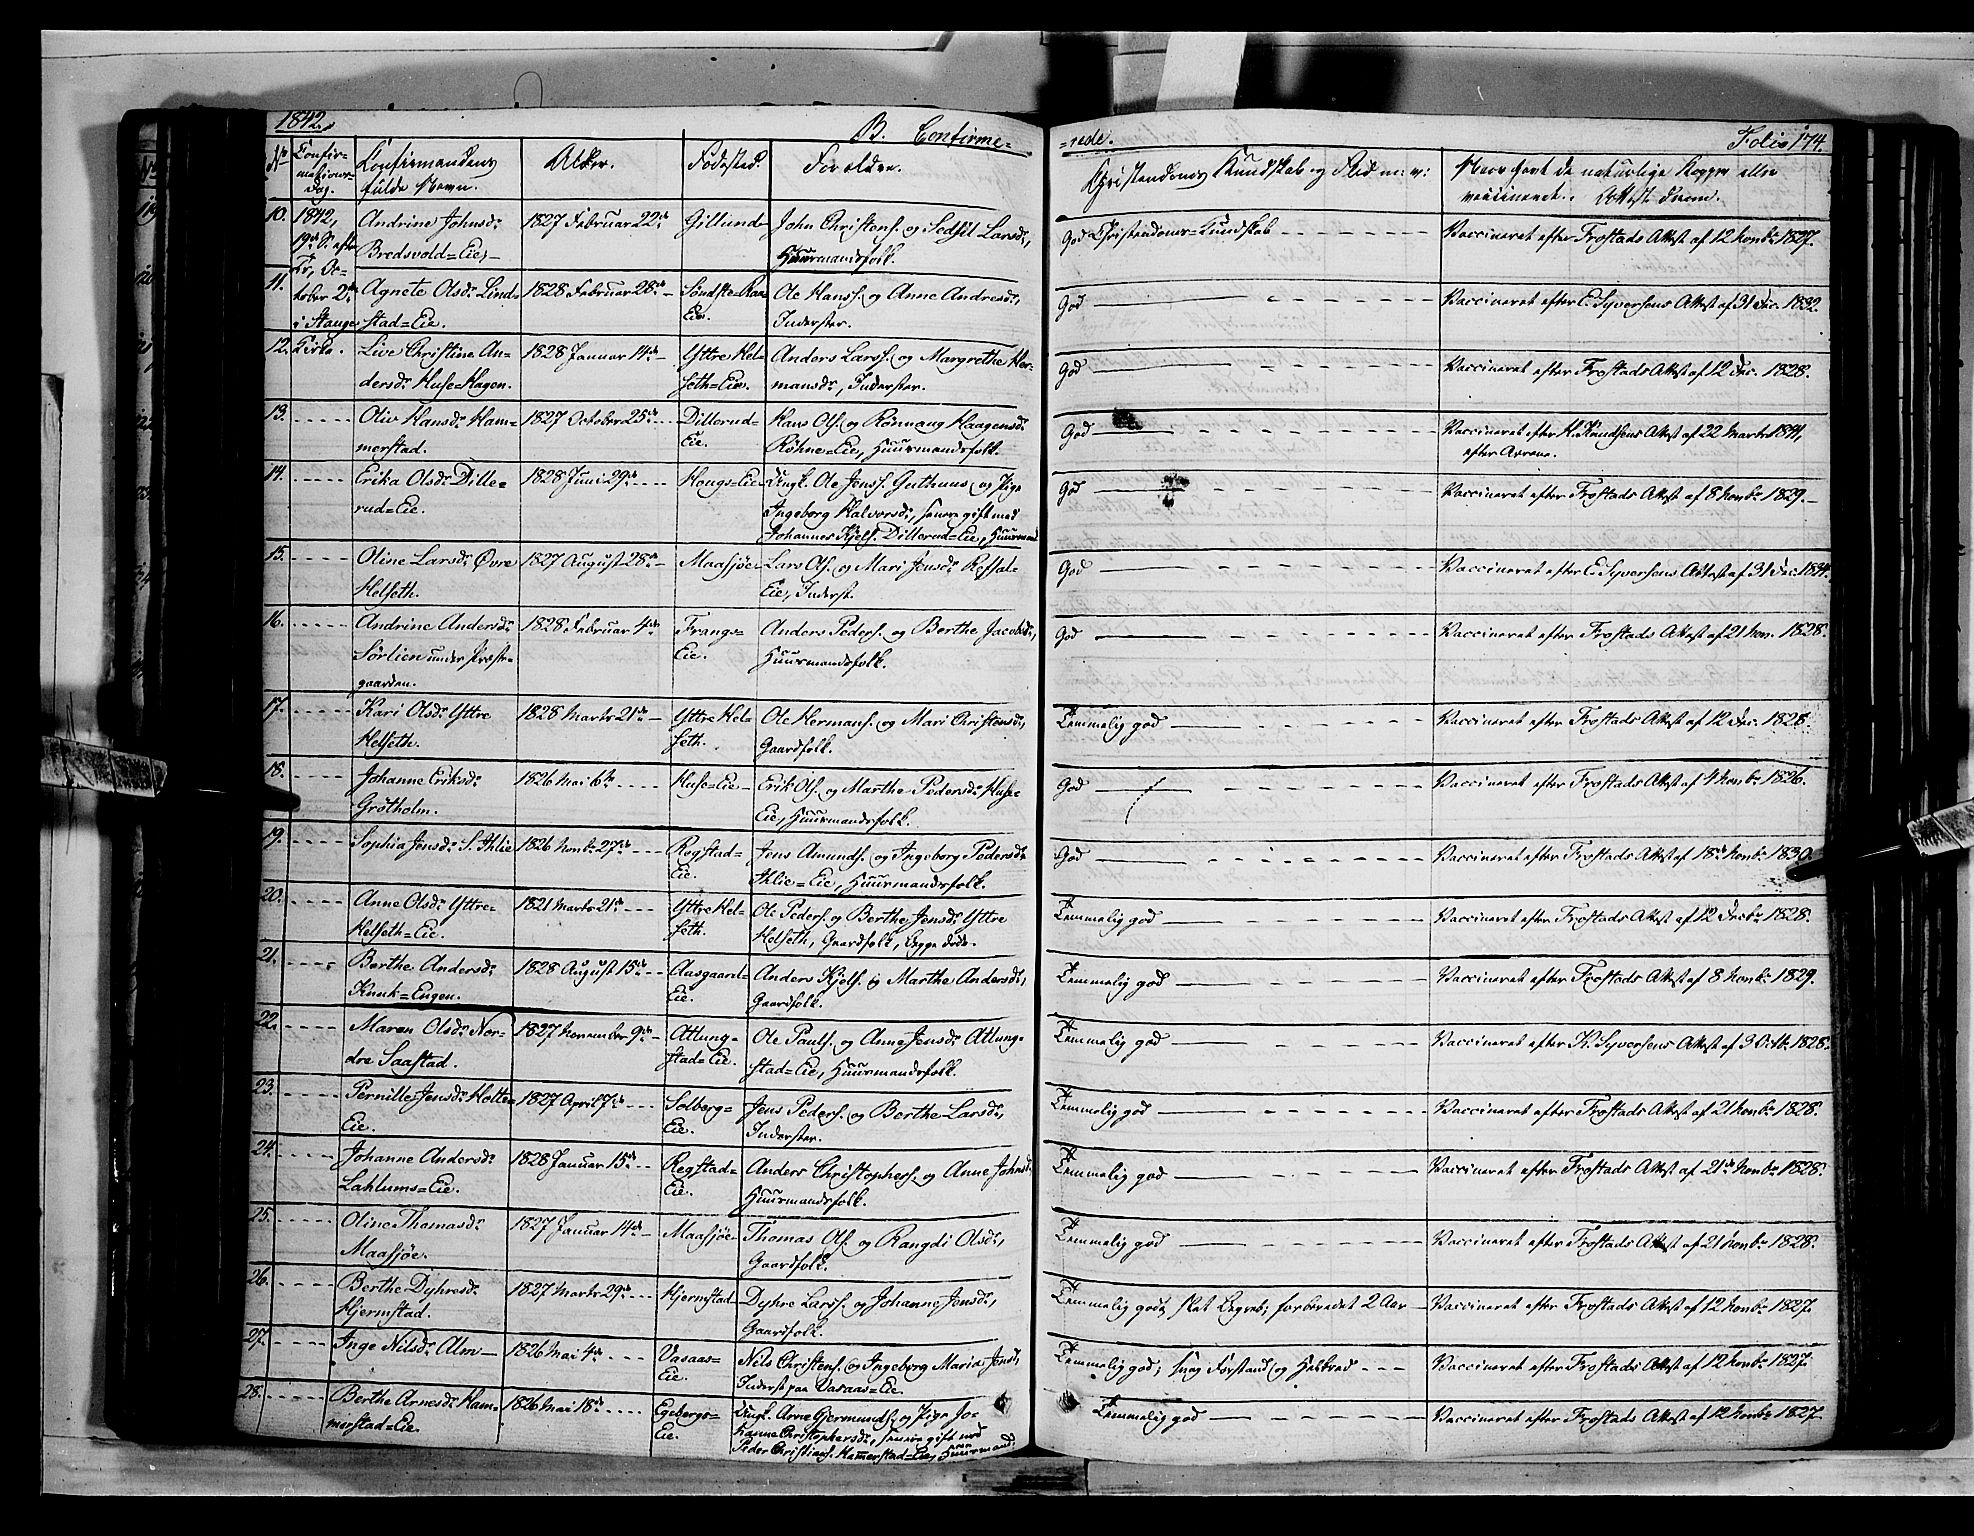 1842.
B. Confirme=
=rede.
Folio 174.
No
Confir=
mations=
dag.
Confirmandens
fulde Navn.
Alder.
Fødested.
Forældre.
Christendoms Kundskab og Flid m: v:
Naar havt de naturlige Kopper eller
vaccineret. Attest derom.
10.
1842,
19de S. efter
Tr, Oc=
tober 2den
i Stange
Kirke.
Andrine Johnsdr
Bredsvold=Eie,
1827 Februar 22de
Gillund
John Christens. og Sedsel Larsdr,
Huusmandsfolk.
God Christendoms=Kundskab
Vaccineret efter Frostads Attest af 12 Novbr 1827.
11.
Agnete Olsdr Lind=
stad=Eie.
1828 Februar 28de
Søndste=Raa
Eie.
Ole Hanss. og Anne Andresdr,
Inderster.
God
Vaccineret efter E. Syversens Attest af 31 Dec. 1832.
12.
Live Christine An=
dersdr Huse=Hagen.
1828 Januar 14de
Yttre Hel=
seth=Eie.
Anders Larss. og Margrethe Her=
mansdr, Inderster.
God
Vaccineret efter Frostads Attest af 12 Dec. 1828.
13.
Oliv Hansdr Ham=
merstad.
1827 October 25de
Dillerud=
Eie.
Hans Ols. og Rønnaug Haagensdr
Røhne=Eie, Huusmandsfolk.
God
Vaccineret efter H. Knudsens Attest af 22 Marts 1841,
efter Arrene.
14.
Erika Olsdr Dille=
rud=Eie.
1828 Juni 29de
Hougs=Eie
Ungk. Ole Jenss. Guthuus og Pige
Ingeborg Halvorsdr, senere gift med
Johannes Kjels. Dillerud=Eie, Huusmand
God
Vaccineret efter Frostads Attest af 8 Novbr 1829.
15.
Oline Larsdr Øvre
Helseth.
1827 August 28de
Maasjøe
Lars Ols. og Mari Jensdr Refsal=
Eie, Inderst.
God
Vaccineret efter E. Syversens Attest af 31 Dec. 1834.
16.
Andrine Andersdr
Sørlien under Præste=
gaarden.
1828 Februar 4de
Frangs=
Eie.
Anders Peders. og Berthe Jacobsdr,
Huusmandsfolk.
God
Vaccineret efter Frostads Attest af 21 Nov. 1828.
17.
Kari Olsdr Yttre
Helseth.
1828 Marts 21de
Yttre Hel=
seth.
Ole Hermans. og Mari Christensdr,
Gaardfolk.
Temmelig god
Vaccineret efter Frostads Attest af 12 Dec. 1828.
18.
Johanne Eriksdr
Grøtholm.
1826 Mai 6te
Huse=Eie
Erik Ols. og Marthe Pedersdr Huse
Eie, Huusmandsfolk.
God
Vaccineret efter Frostads Attest af 4 Novbr 1826.
19.
Sophia Jensdr S. Ihlie
1826 Novbr 27de
Rogstad=
Eie.
Jens Amunds. og Ingeborg Pedersdr
Ihlie=Eie, Huusmandsfolk.
God
Vaccineret efter Frostads Attest af 18de Novbr 1830.
20.
Anne Olsdr Yttre=
Helseth=Eie.
1821 Marts 21de
Yttre Hel=
seth.
Ole Peders. og Berthe Jensdr Yttre
Helseth, Gaardfolk, begge døde.
Temmelig god
Vaccineret efter Frostads Attest af 12 Decbr 1828.
21.
Berthe Andersdr
Kuuk=Engen.
1828 August 15de
Aasgaard=
Eie.
Anders Kjels. og Marthe Andersdr,
Gaardfolk.
Temmelig god
Vaccineret efter Frostads Attest af 8 Novbr 1829.
22.
Maren Olsdr Nor=
dre Saastad.
1827 November 9de
Attung=
stad=Eie.
Ole Pauls. og Anne Jensdr Attung=
stad=Eie, Huusmandsfolk.
Temmelig god
Vaccineret efter K. Syversens Attest af 3 Octb. 1828.
23.
Pernille Jensdr Holte=
Eie.
1827 April 7de
Solberg=
Eie.
Jens Peders. og Berthe Larsdr,
Inderster.
Temmelig god
Vaccineret efter Frostads Attest af 21 Novbr 1828.
24.
Johanne Andersdr
Lahlums=Eie.
1828 Januar 15de
Rogstad=
Eie.
Anders Christophers. og Anne Johnsdr
Huusmandsfolk.
Temmelig god
Vaccineret efter Frostads Attest af 21de Novbr 1828.
25.
Oline Thomasdr
Maasjøe.
1827 Januar 14de
Maasjøe
Thomas Ols. og Rangdi Olsdr,
Gaardfolk.
Temmelig god
Vaccineret efter Frostads Attest af 21 Novbr 1828.
26.
Berthe Dyhresdr
Hjermstad.
1827 Marts 29de
Hjermstad
Dyhre Larss. og Johanne Jensdr,
Gaardfolk.
Temmelig god; slet Begreb; forberedet 2 Aar
Vaccineret efter Frostads Attest af 12 Novbr 1827.
27.
Inge Nilsdr Alm
1826 Mai 4de
Vasaas=
Eie.
Nils Christens. og Ingeborg Maria Jensdr,
Inderst paa Vasaas=Eie.
Temmelig god; svag Forstand og
Vaccineret efter Frostads Attest af 12 Novbr 1827.
28.
Berthe Arnesdr Ham=
merstad=Eie.
1826 Mai 18de
Egebergs=
Eie.
Ungk. Arne Gjermunds. og Pige Jo=
hanne Christophersdr, senere gift med
Peder Christians. Hamerstad=Eie, Huusmand.
Temmelig god
Vaccineret efter Frostads Attest af 12 Novbr 1827.